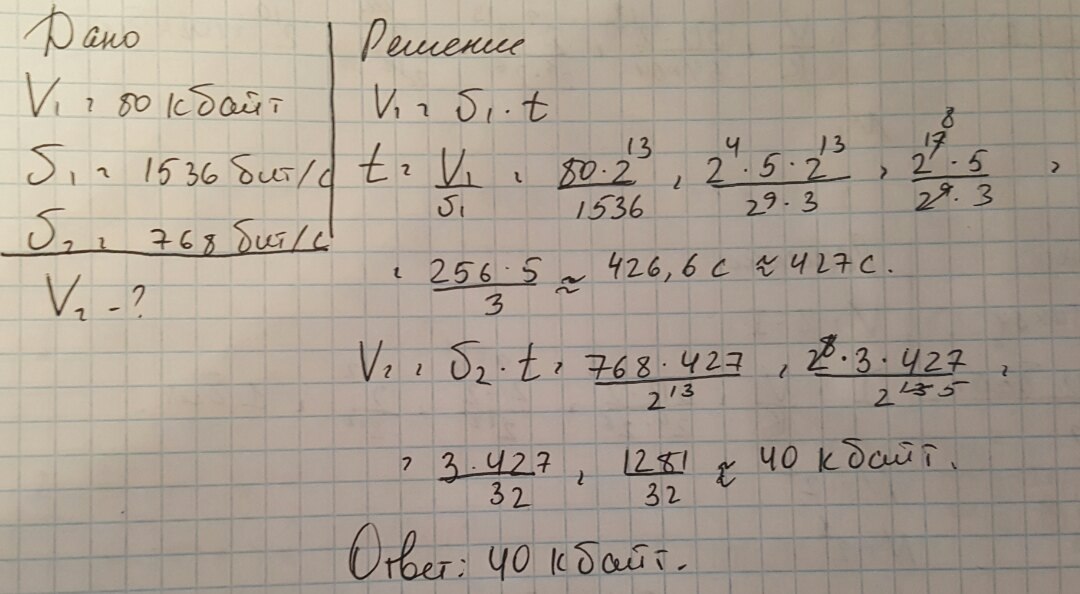 Дано
V₁ = 80 кбайт
υ₁ = 1536 бит/с
υ₂ = 768 бит/с
V₂ - ?
Решение
V₁ = υ₁ · t
t = V₁/υ₁ = 80 · 2¹³/1536 = 2⁴ · 5 · 2¹³/2⁹ · 3 = 2¹⁷ ⁸ · 5/2⁹ · 3 =
= 256 · 5/3 ≈ 426,6 с ≈ 427 с.
V₂ = υ₂ · t = 768 · 427/2¹³ = 2⁸ · 3 · 427/2¹³ 5 =
= 3 · 427/32 = 1281/32 ≈ 40 кбайт.
Ответ: 40 кбайт.